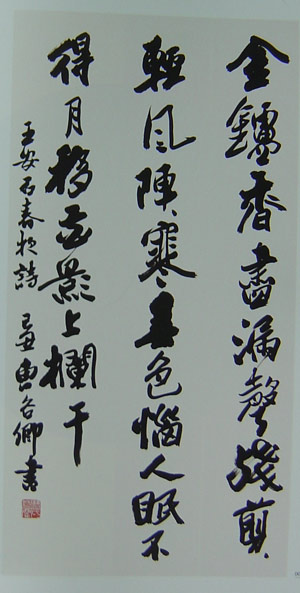 金鑪香盡漏聲殘翦〻
輕風陣〻寒春色惱人眠不
得月移花影上欄干
王安石春夜詩 己丑 卿書